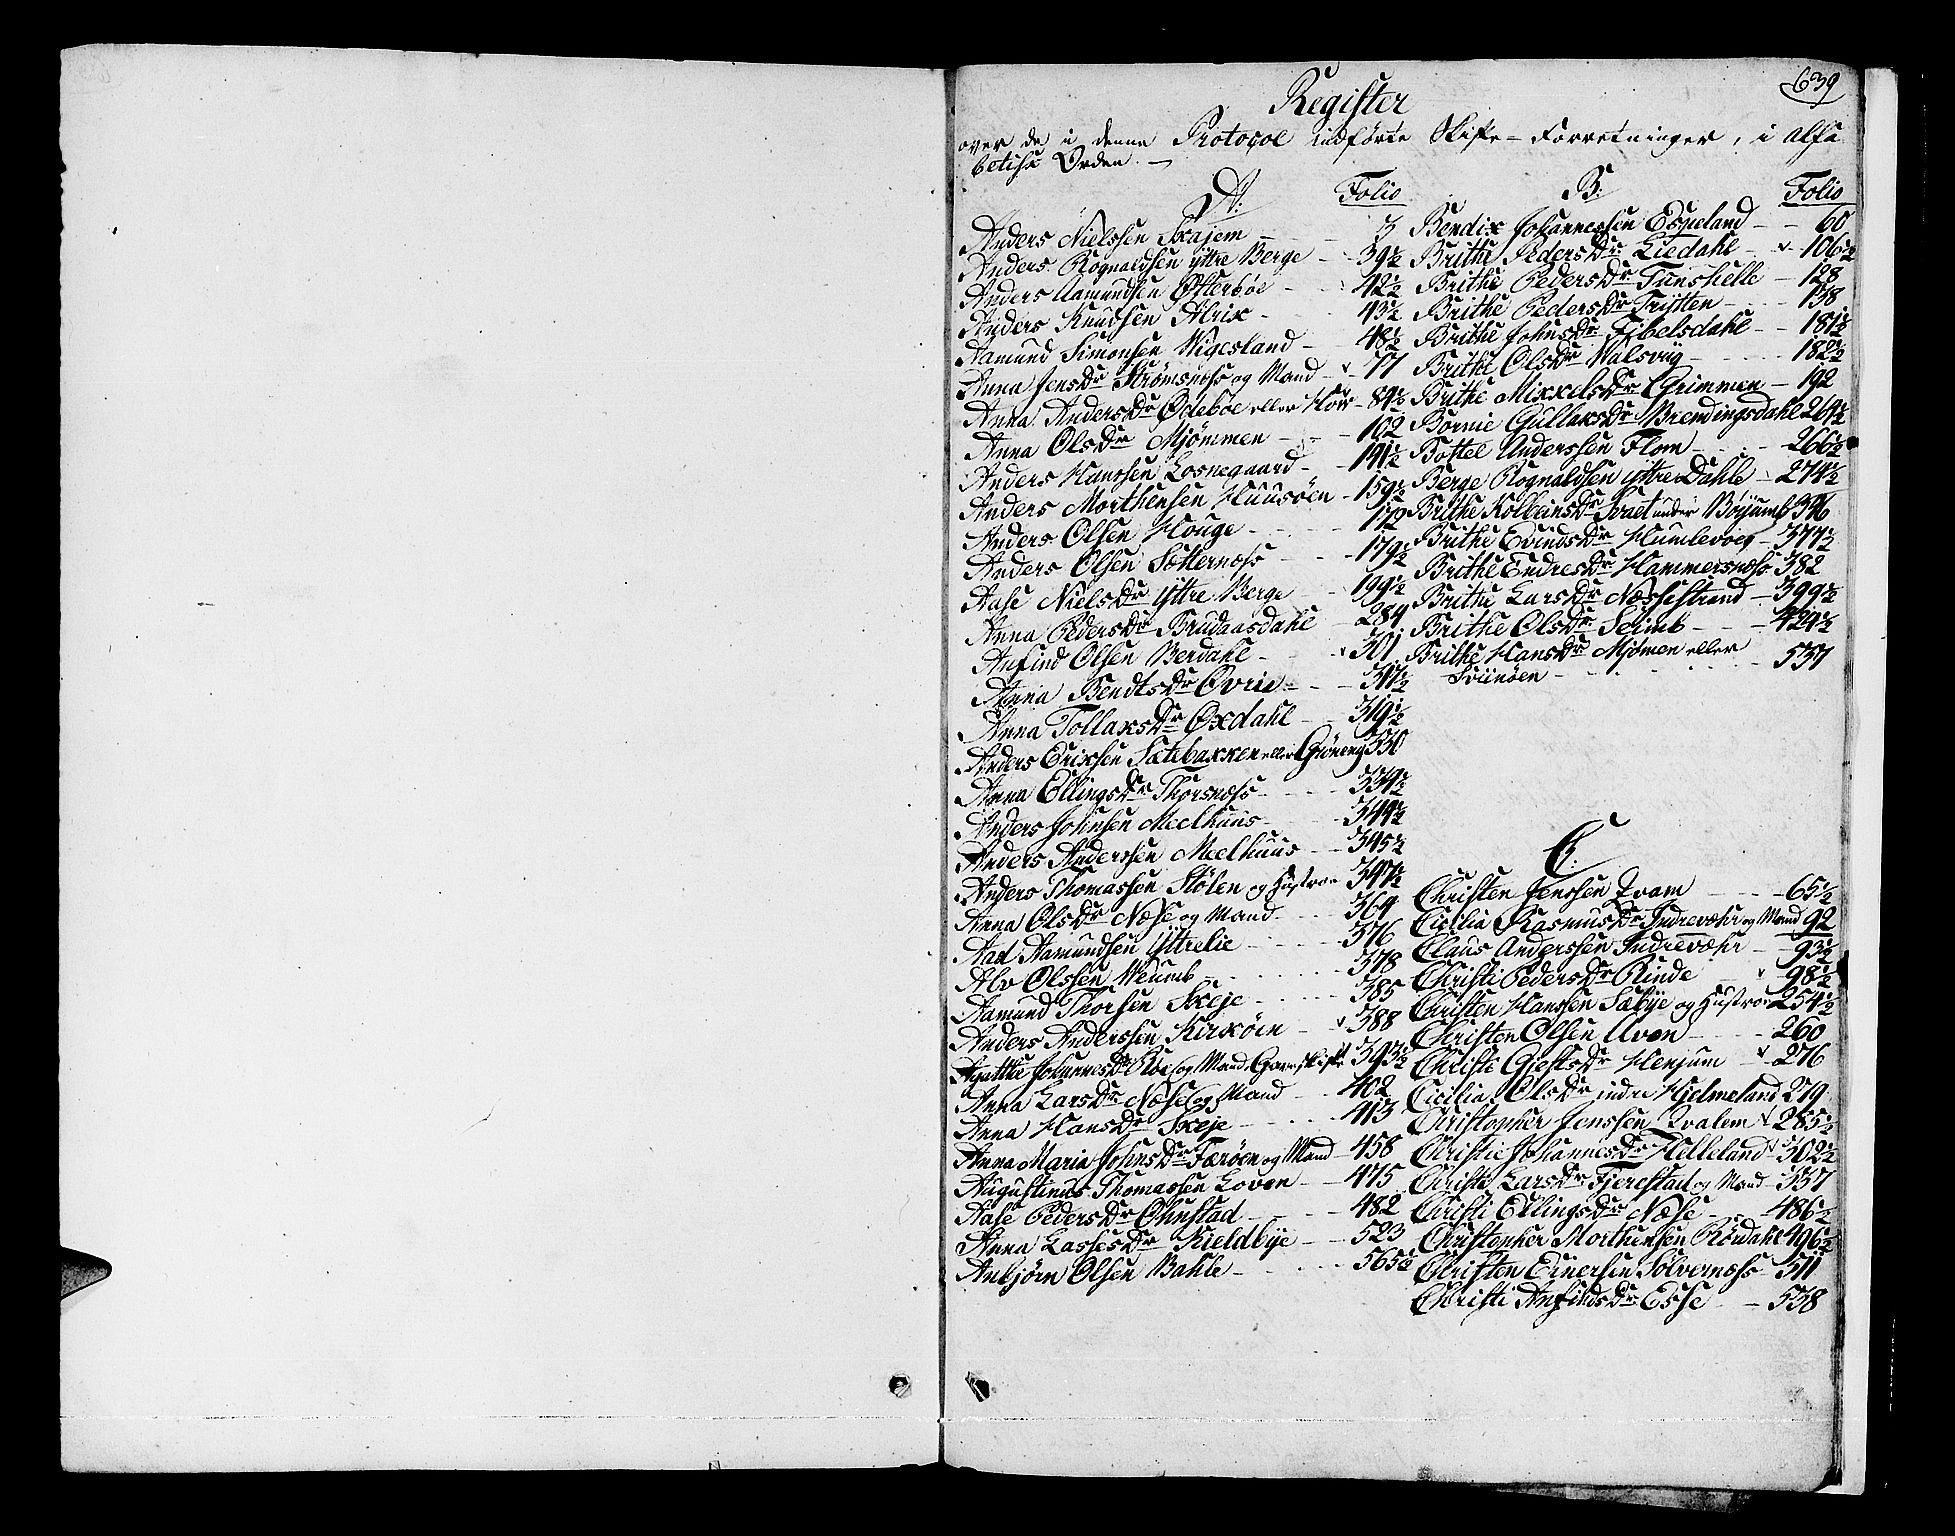 639
Register
over de i denne Protocol indførte Skifte-Forretninger, i alfa
betisk Orden. —
A: Folio
Anders Nielssen Skajem - - 3
Anders Rognaldsen ÿttre Berge - - 39½
Anders Aamundsen Østerbøe - - 42½
Anders Knudsen Alrix - - 43½
Aamund Simonsen Wigesland - - 48½
Anna Jensdr Strømsnæss og Mand - 77
Anna Andersdr Ødeboe eller Hov - 89½
Anna Olsdr Mjømmen - - 102
Anders Hanssen Losnegaard - - 141½
Anders Morthensen Huusøen - 159½
Anders Olsen Houge - - 172
Anders Olsen Sætternæss - - 179½
Aase Nielsdr ÿttre Berge - - 199½
Anna Pedersdr Brudaasdahl - 284
Anfind Olsen Berdahl - - 301
Anna Bendtsdr Øvrie - - 317½
Anna Tollaksdr Øxdahl - - 319½
Anders Erixsen Sætebakken eller Grøneng 330
Anna Ellingsdr Thorsnæss - - 334½
Anders Johnsen Meelhuus - - 344½
Anders Anderssen Meelhuus - - 345½
Anders Thomassen Stølen og Hustroe 347½
Anna Olsdr Næse og Mand - - 364
Aad Aamundsen Ÿttrelie - - 376
Alv Olssen Weumb - - 378
Aamund Thorsen Skeje - - 385
Anders Anderssen Kirkøen - - 388
Agatthe Johannesdr Røe og Mand, Gavn skifte 393½
Anna Larsdr Næse og Mand - - 402
Anna Hansdr Skeje - - 413
Anna Maria Johnsdr Færøen og Mand 458
Augustinus Thomassen Loven - - 475
Aase Pedersdr Ohnstad - - 482
Anna Lassesdr Kieldbÿe - - 523
Anbjørn Olsen Bahle - - 565½
B: Folio
Bendix Johannessen Espeland - - 60
Brithe Pedersdr Liedahl - 106½
Brithe Pedersdr Trinshelle - 128
Brithe Pedersdr Trÿtten - - 138
Brithe Johnsdr Fibelsdahl - - 181½
Brithe Olsdr Walsviig - - 182½
Brithe Mikkelsdr Grimmen - 192
Børnie Gullaksdr Brendingsdahl 264½
Bottel Anderssen Flom - - 266½
Berge Rognaldsen ÿttre Dahle - 274½
Brithe Kolbeinsdr Svaet under Børjumb 346
Brithe Evindsdr Humlevoeg - 377½
Brithe Endresdr Hammersnæss 382
Brithe Larsdr Næssestrand - 399½
Brithe Olsdr Seimb - - 424½
Brithe Hansdr Mjømen eller
Sviinøen - - 537
C:
Christen Jenssen Qvam - - 65½
Cicilia Rasmusdr Indrevæhr og Mand 92
Claus Anderssen Indrevæhr - 93½
Christi Pedersdr Rinde 98½
Christen Hanssen Sæbÿe og Hustroe 254½
Christen Olsen Uven - - 260
Christi Gjestsdr Henjum - 276
Cicilia Olsdr indre Hjelmeland 279
Christopher Jenssen Qvalem 285½
Christie Johannesdr Helleland 302½
Christi Larsdr Fjerestad og Mand - 357
Christi Ellingsdr Næse - - 486½
Christopher Morthensen Rørdahl 496½
Christen Einersen Solvernæss - 511
Christi Anfindsdr Esse - - 538